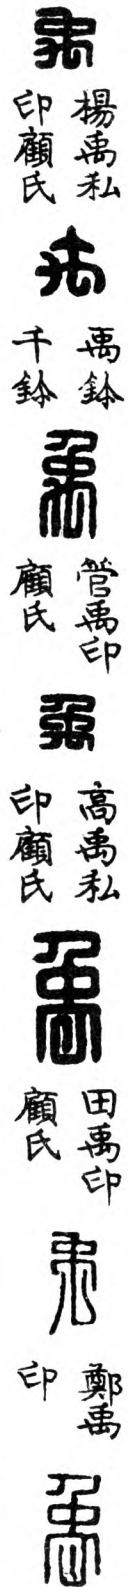 禹
楊禹私
印顧氏
禹
禹鉢
千鉢
禹
管禹印
顧氏
禹
高禹私
印顧氏
禹
田禹印
顧氏
禹
鄭禹
印
禹